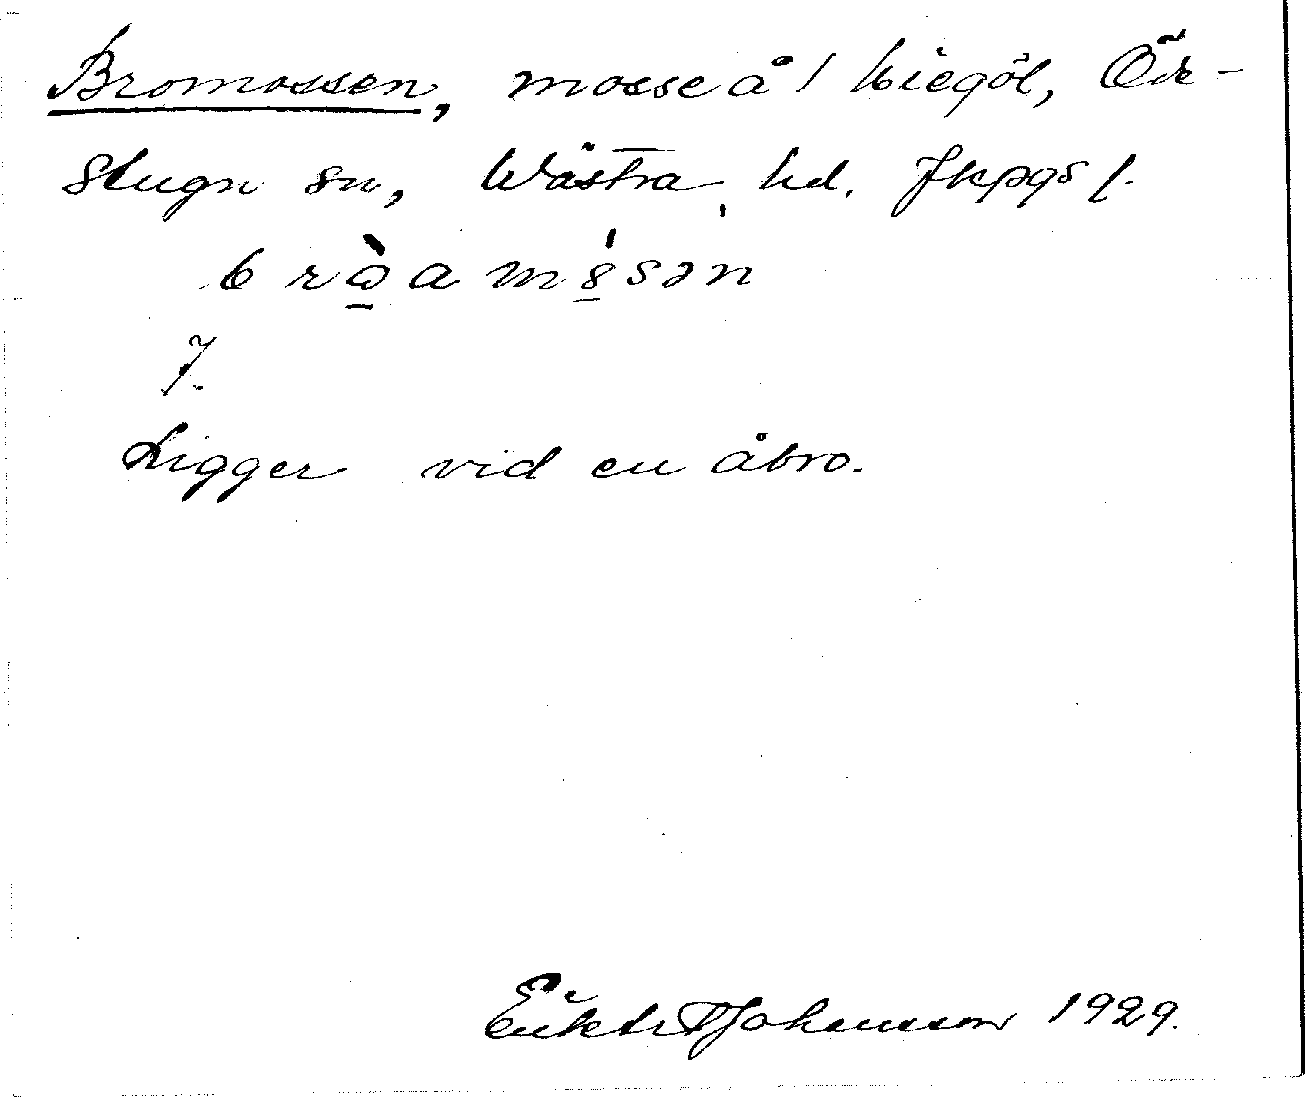 Bromossen, mosse å 1 Kiegöl, Ök-
stugn sn, Västra hd. Jkpgs l.
bròamósən
7.
Ligger vid en åbro.
Johansson 1929.